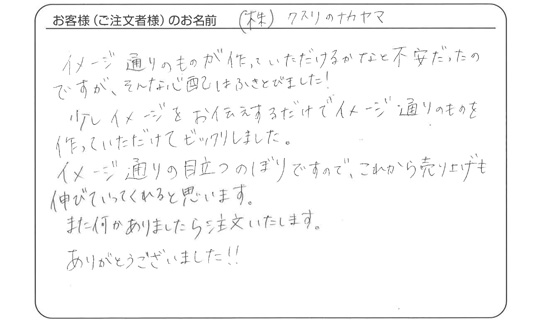 お客様（ご注文者様）のお名前 （株）クスリのナカヤマ
イメージ通りのものが作っていただけるかなと不安だったの
ですが、そんな心配はふきとびました！
少しイメージをお伝えするだけでイメージ通りのものを
作っていただけてビックリしました。
イメージ通りの目立つのぼりですので、これから売り上げも
伸びていってくれると思います。
また何かありましたら注文いたします。
ありがとうございました!!